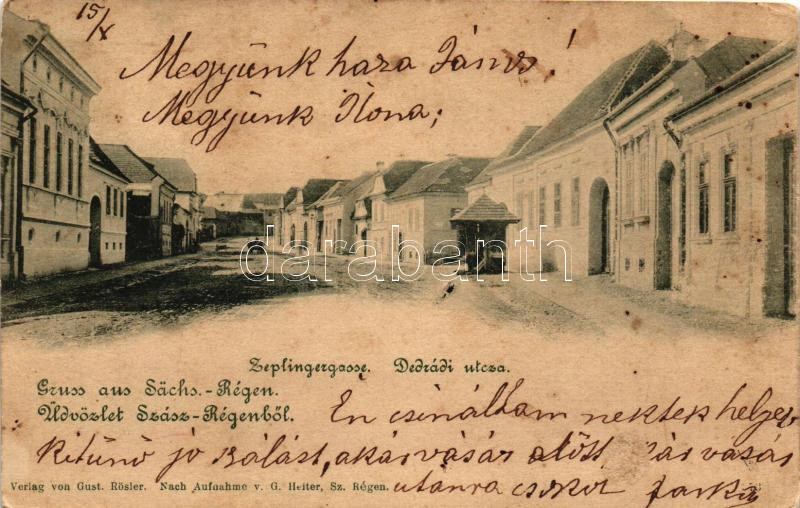 15/X
Megyünk haza János!
Megyünk Ilona;
darabanth.com
Zeplingergasse. Dedrádi utcza.
Gruss aus Sächs.-Régen.
Üdvözlet Szász-Régenből.
Én csináltam nektek helyet
Kitünö jo Bálást, akár vásár elött
vásár vásár
Verlag von Gust. Rösler. Nach Aufnahme v. G. Heiter, Sz. Régen.
utánra csokol